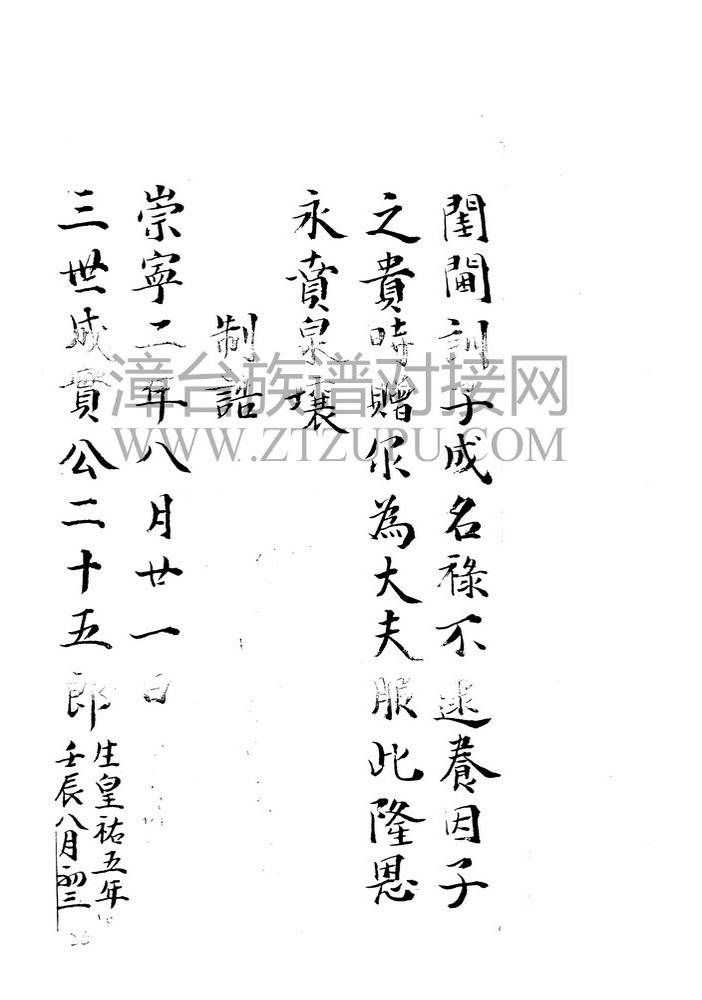 閨閫訓子成名祿不逮養因子
之貴時贈尔為大夫服此隆恩
永賁泉壤
制誥
崇寧二年八月廿一日
三世成貫公二十五郎
生皇祐五年
壬辰八月初三
漳台族谱对接网
WWW.ZTZUPU.COM